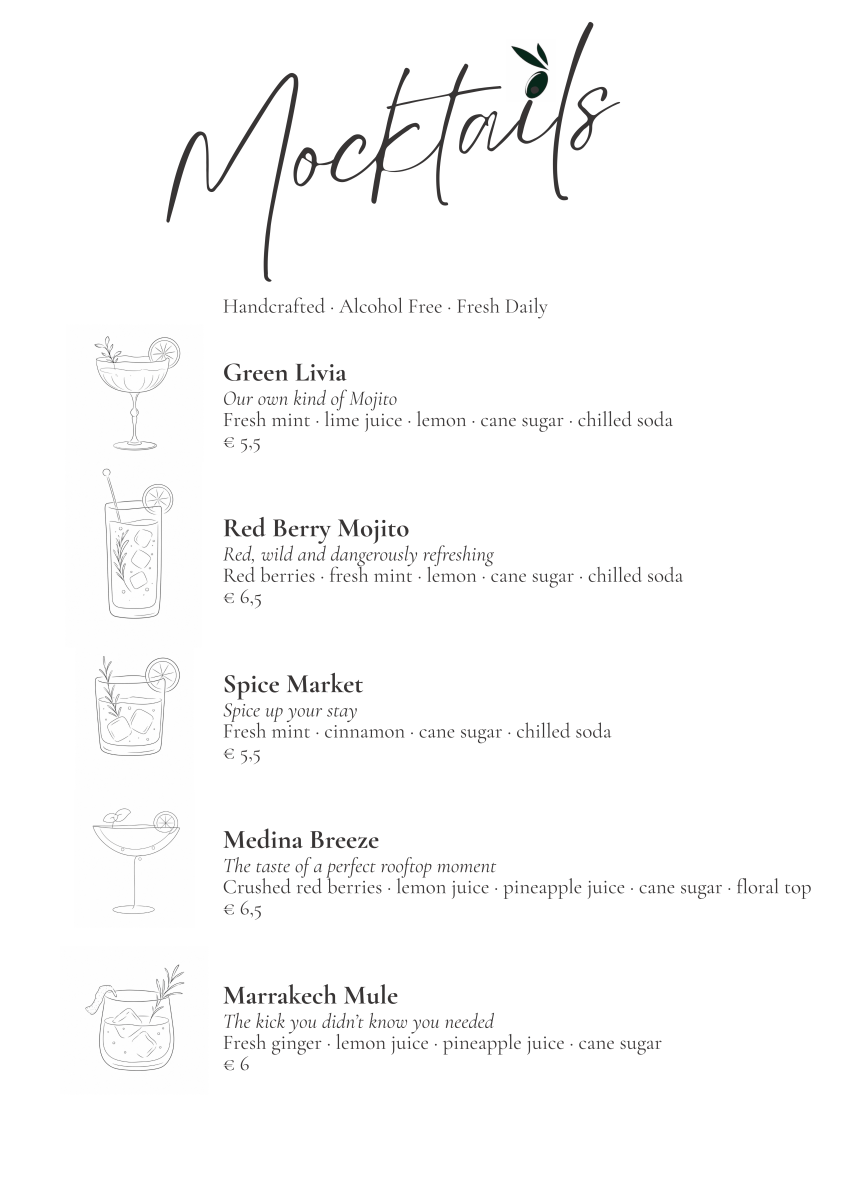 Mocktails
Handcrafted · Alcohol Free · Fresh Daily
Green Livia
Our own kind of Mojito
Fresh mint · lime juice · lemon · cane sugar · chilled soda
€ 5,5
Red Berry Mojito
Red, wild and dangerously refreshing
Red berries · fresh mint · lemon · cane sugar · chilled soda
€ 6,5
Spice Market
Spice up your stay
Fresh mint · cinnamon · cane sugar · chilled soda
€ 5,5
Medina Breeze
The taste of a perfect rooftop moment
Crushed red berries · lemon juice · pineapple juice · cane sugar · floral top
€ 6,5
Marrakech Mule
The kick you didn’t know you needed
Fresh ginger · lemon juice · pineapple juice · cane sugar
€ 6